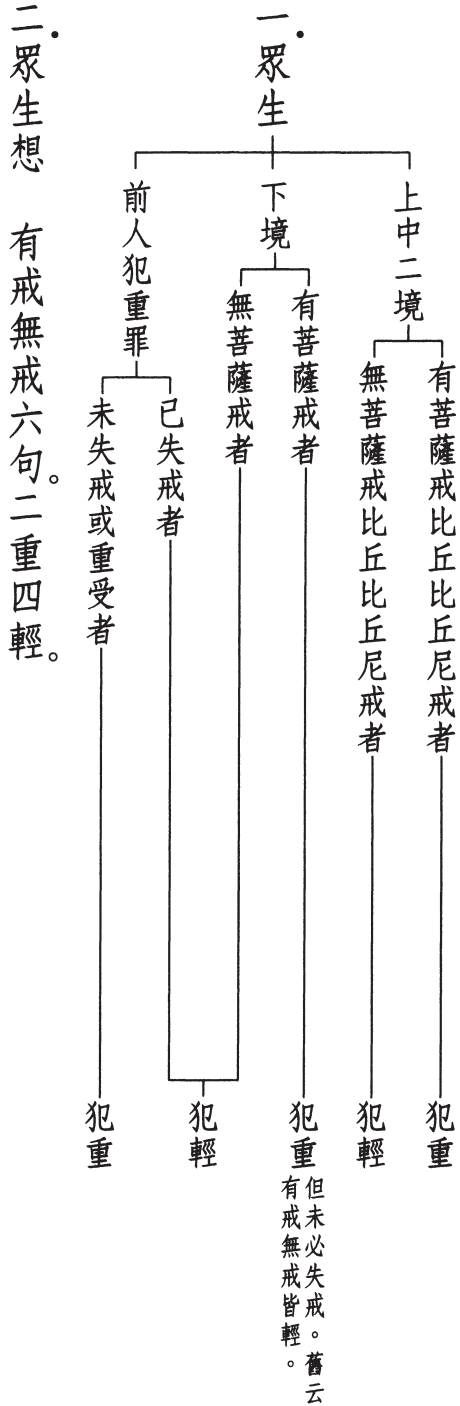 一．眾生
上中二境
有菩薩戒比丘比丘尼戒者
犯重
無菩薩戒比丘比丘尼戒者
犯輕
下境
有菩薩戒者
犯重
但未必失戒。舊云
有戒無戒皆輕。
無菩薩戒者
前人犯重罪
已失戒者
犯輕
未失戒或重受者
犯重
二．眾生想　有戒無戒六句。二重四輕。